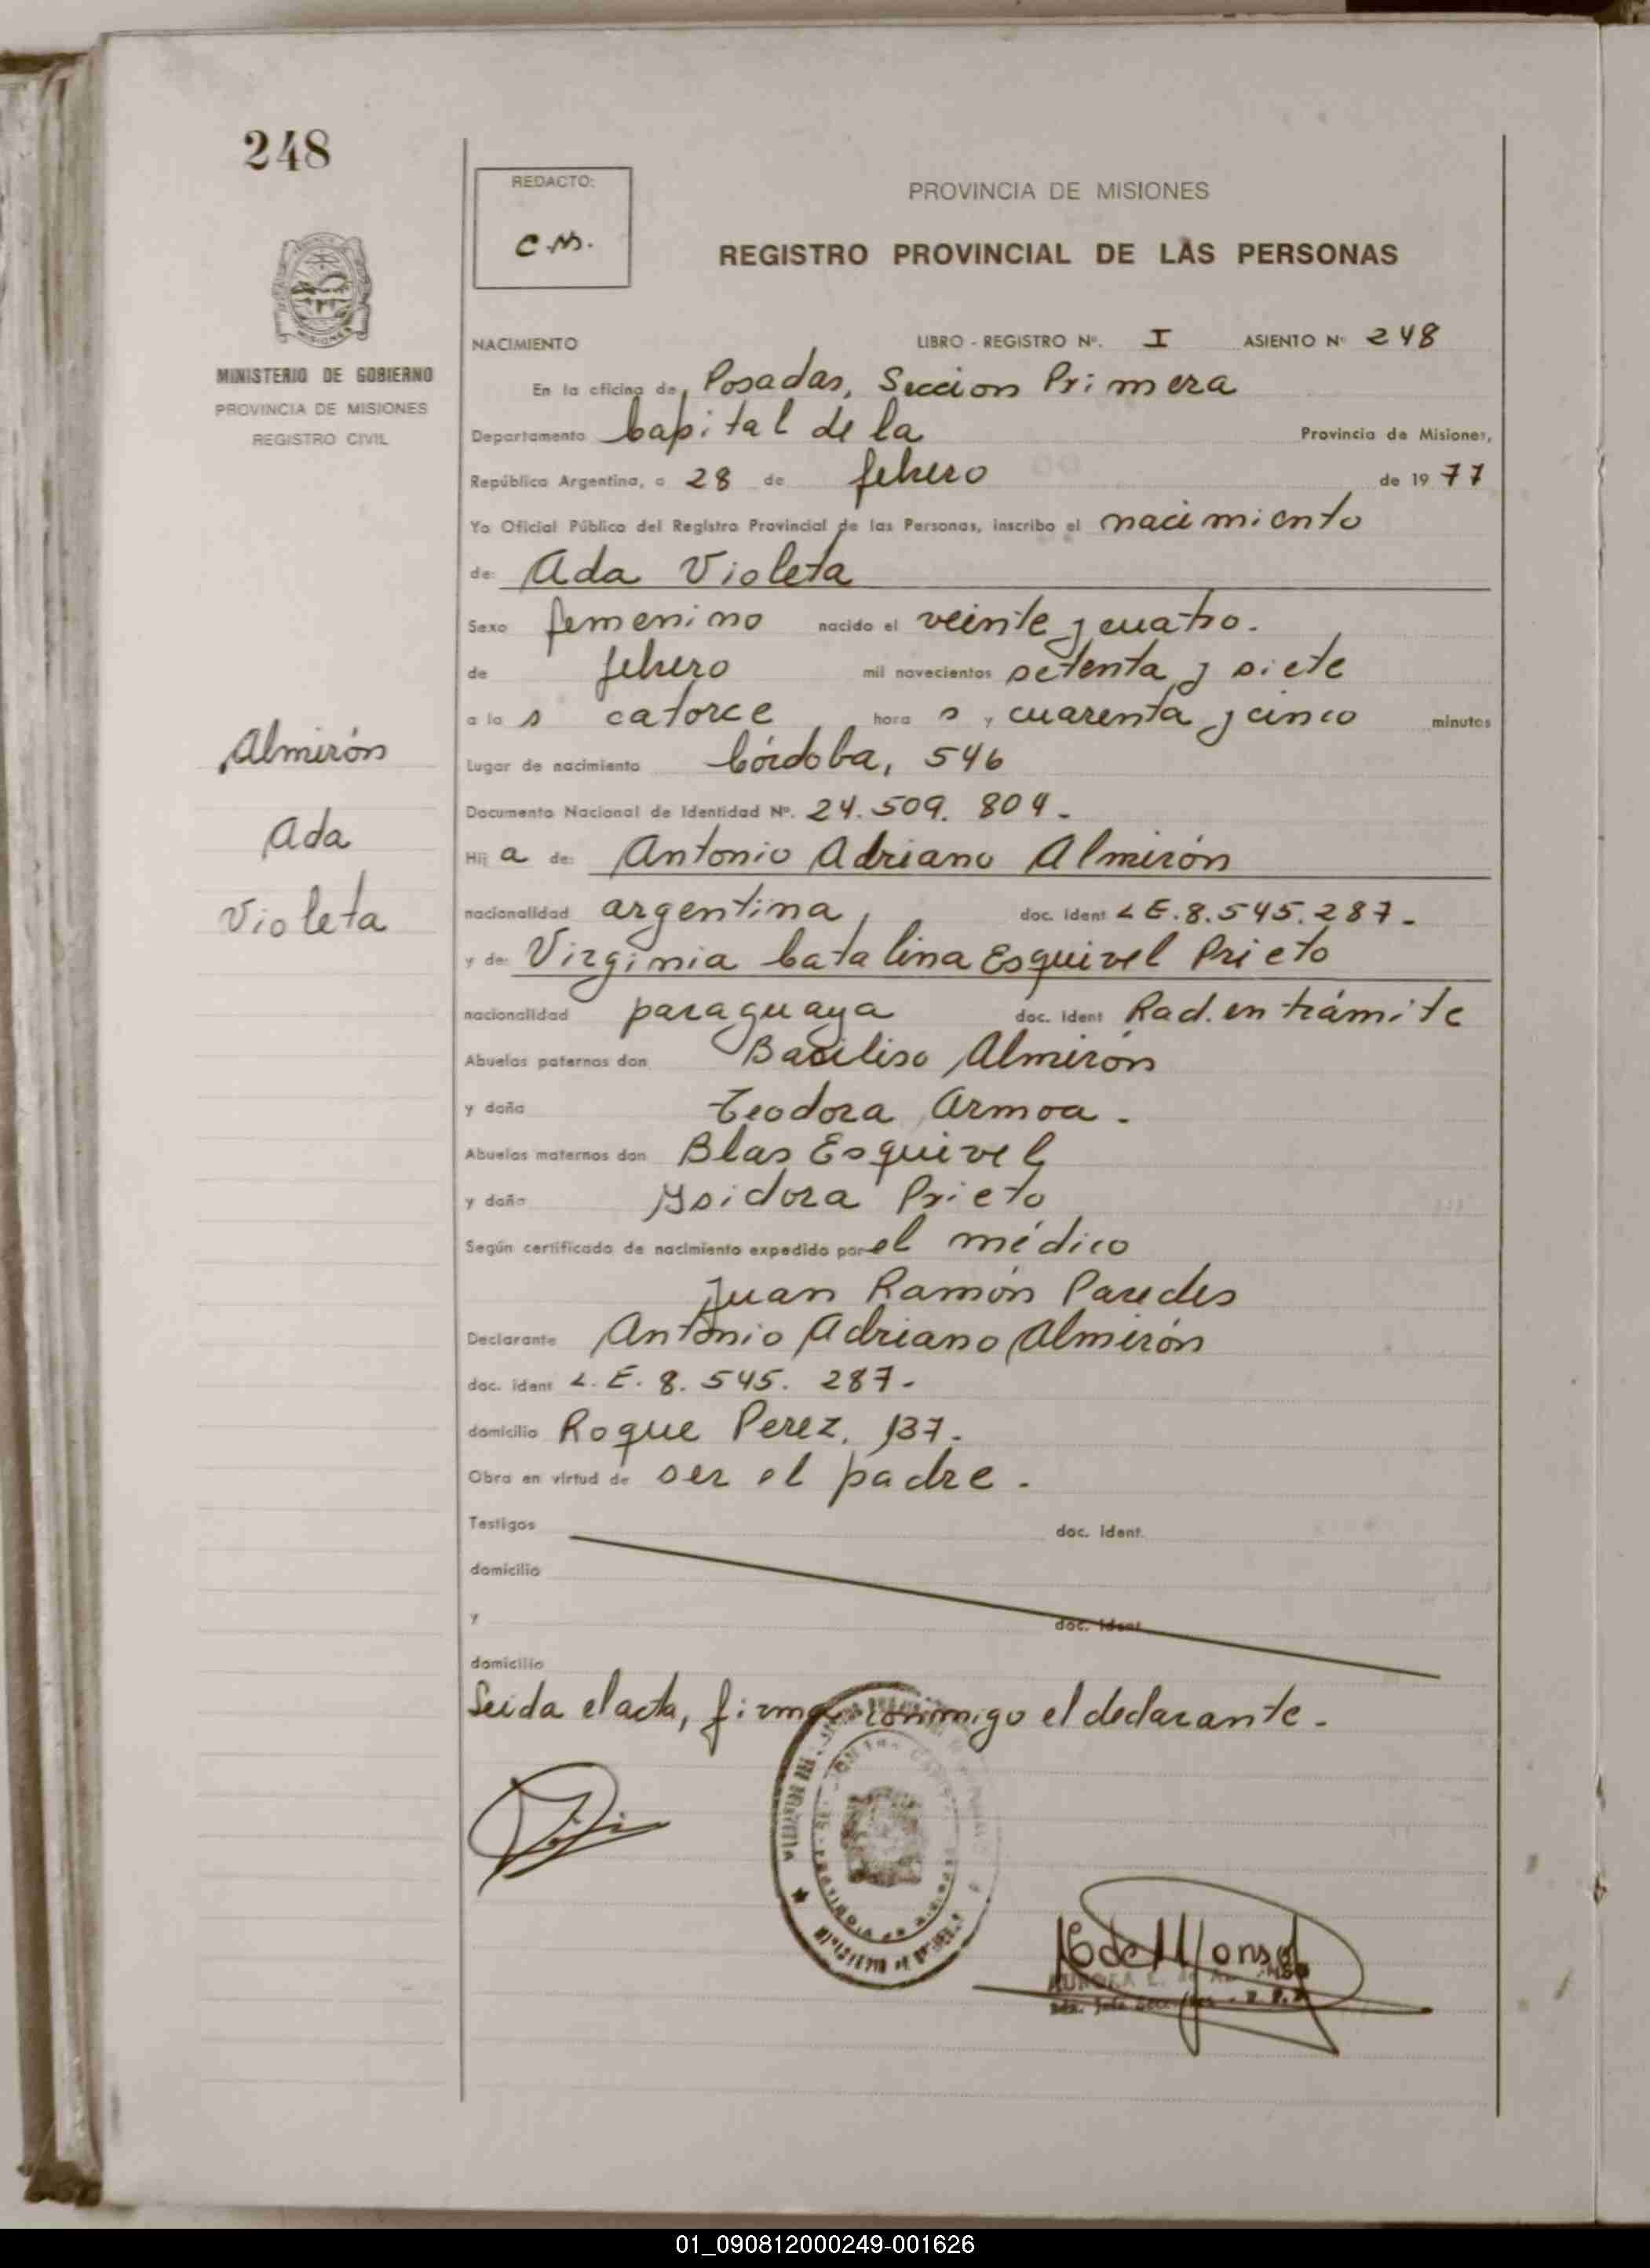 248
REDACTO:
C.M.
PROVINCIA DE MISIONES
REGISTRO PROVINCIAL DE LAS PERSONAS
MISIONES
MINISTERIO DE GOBIERNO
PROVINCIA DE MISIONES
REGISTRO CIVIL
NACIMIENTO LIBRO - REGISTRO Nº. I ASIENTO Nº 248
En la oficina de Posadas, Seccion Primera
Departamento Capital de la Provincia de Misiones,
República Argentina, a 28 de febrero de 1977
Yo Oficial Público del Registro Provincial de las Personas, inscribo el nacimiento
de: Ada Violeta
Sexo femenino nacido el veinte y cuatro.
de febrero mil novecientos setenta y siete
a la s catorce hora s y cuarenta y cinco minutos
Lugar de nacimiento Córdoba, 546
Documento Nacional de Identidad Nº. 24.509.804.-
Hij a de: Antonio Adriano Almirón
nacionalidad argentina, doc. ident L.E.8.545.287.-
y de: Virginia Catalina Esquivel Prieto
nacionalidad paraguaya doc. ident Rad. en trámite
Abuelos paternos don Basiliso Almirón
y doña Teodora Armoa.-
Abuelos maternos don Blas Esquivel
y doña Ysidora Prieto
Según certificado de nacimiento expedido por el médico
Juan Ramón Paredes
Declarante Antonio Adriano Almirón
doc. ident L.E. 8.545.287.-
domicilio Roque Perez, 137.-
Obra en virtud de ser el padre.-
Testigos doc. ident.
domicilio
y doc. ident
domicilio
Leida el acta, firma conmigo el declarante.-
Almirón
Ada
Violeta
01_090812000249-001626